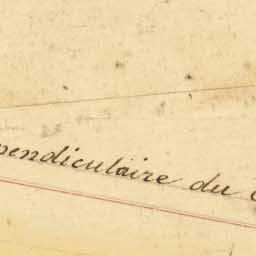 pendiculaire du